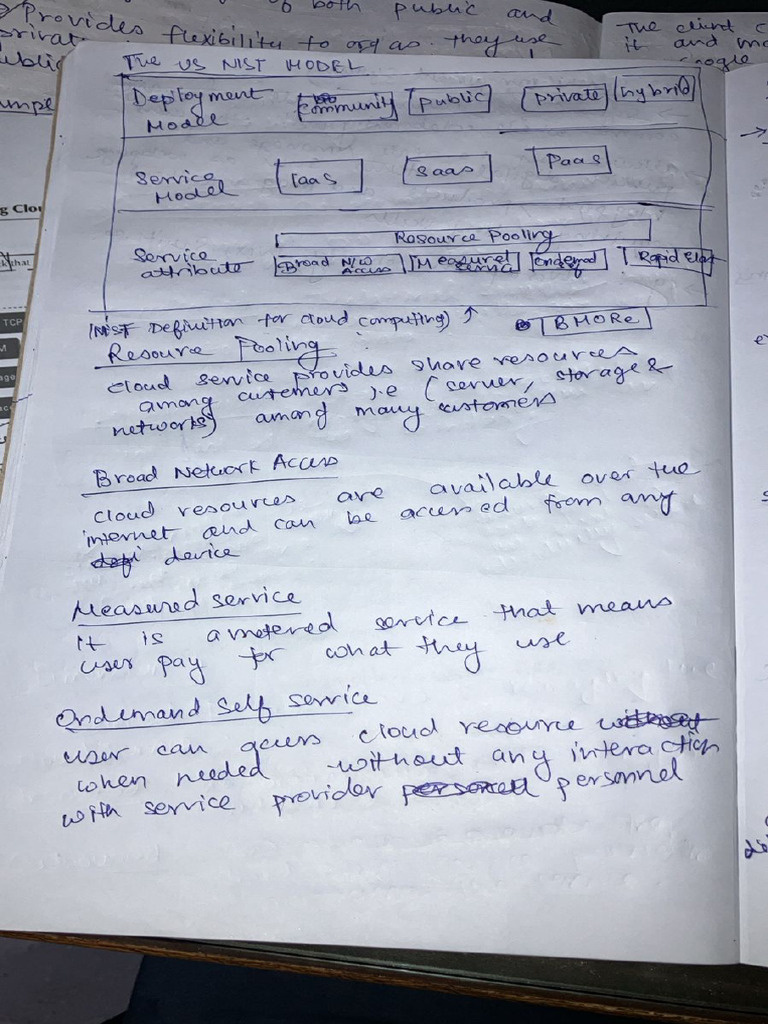 of both public and
Provides flexibility to orgas. they use
The client c
it and ma
google
The US NIST MODEL
Deployment Model community public private hybrid
Service Model IaaS SaaS PaaS
Resource Pooling
Service attribute Broad N/W Access Measured Service Ondemad Rapid Elas
(NIST Definition for cloud computing) ↑ BMORe
Resource Pooling
cloud service provides share resources
among custemers i.e (server, storage &
networks) among many customers
Broad Network Access
cloud resources are available over the
internet and can be accessed from any
device
Measured service
it is a metered service that means
user pay for what they use
Ondemand Self service
user can access cloud resource without
when needed without any interaction
with service provider personell personnel
g Clou
TCP